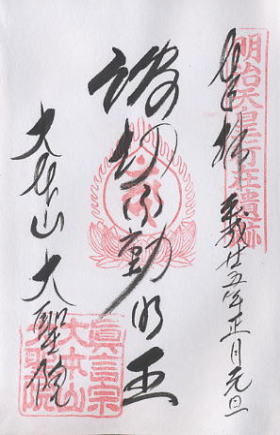 明治天皇行在遺跡
平成廿五年正月元旦
波切不動明王
大本山 大聖院
眞言宗
大本山
大聖院